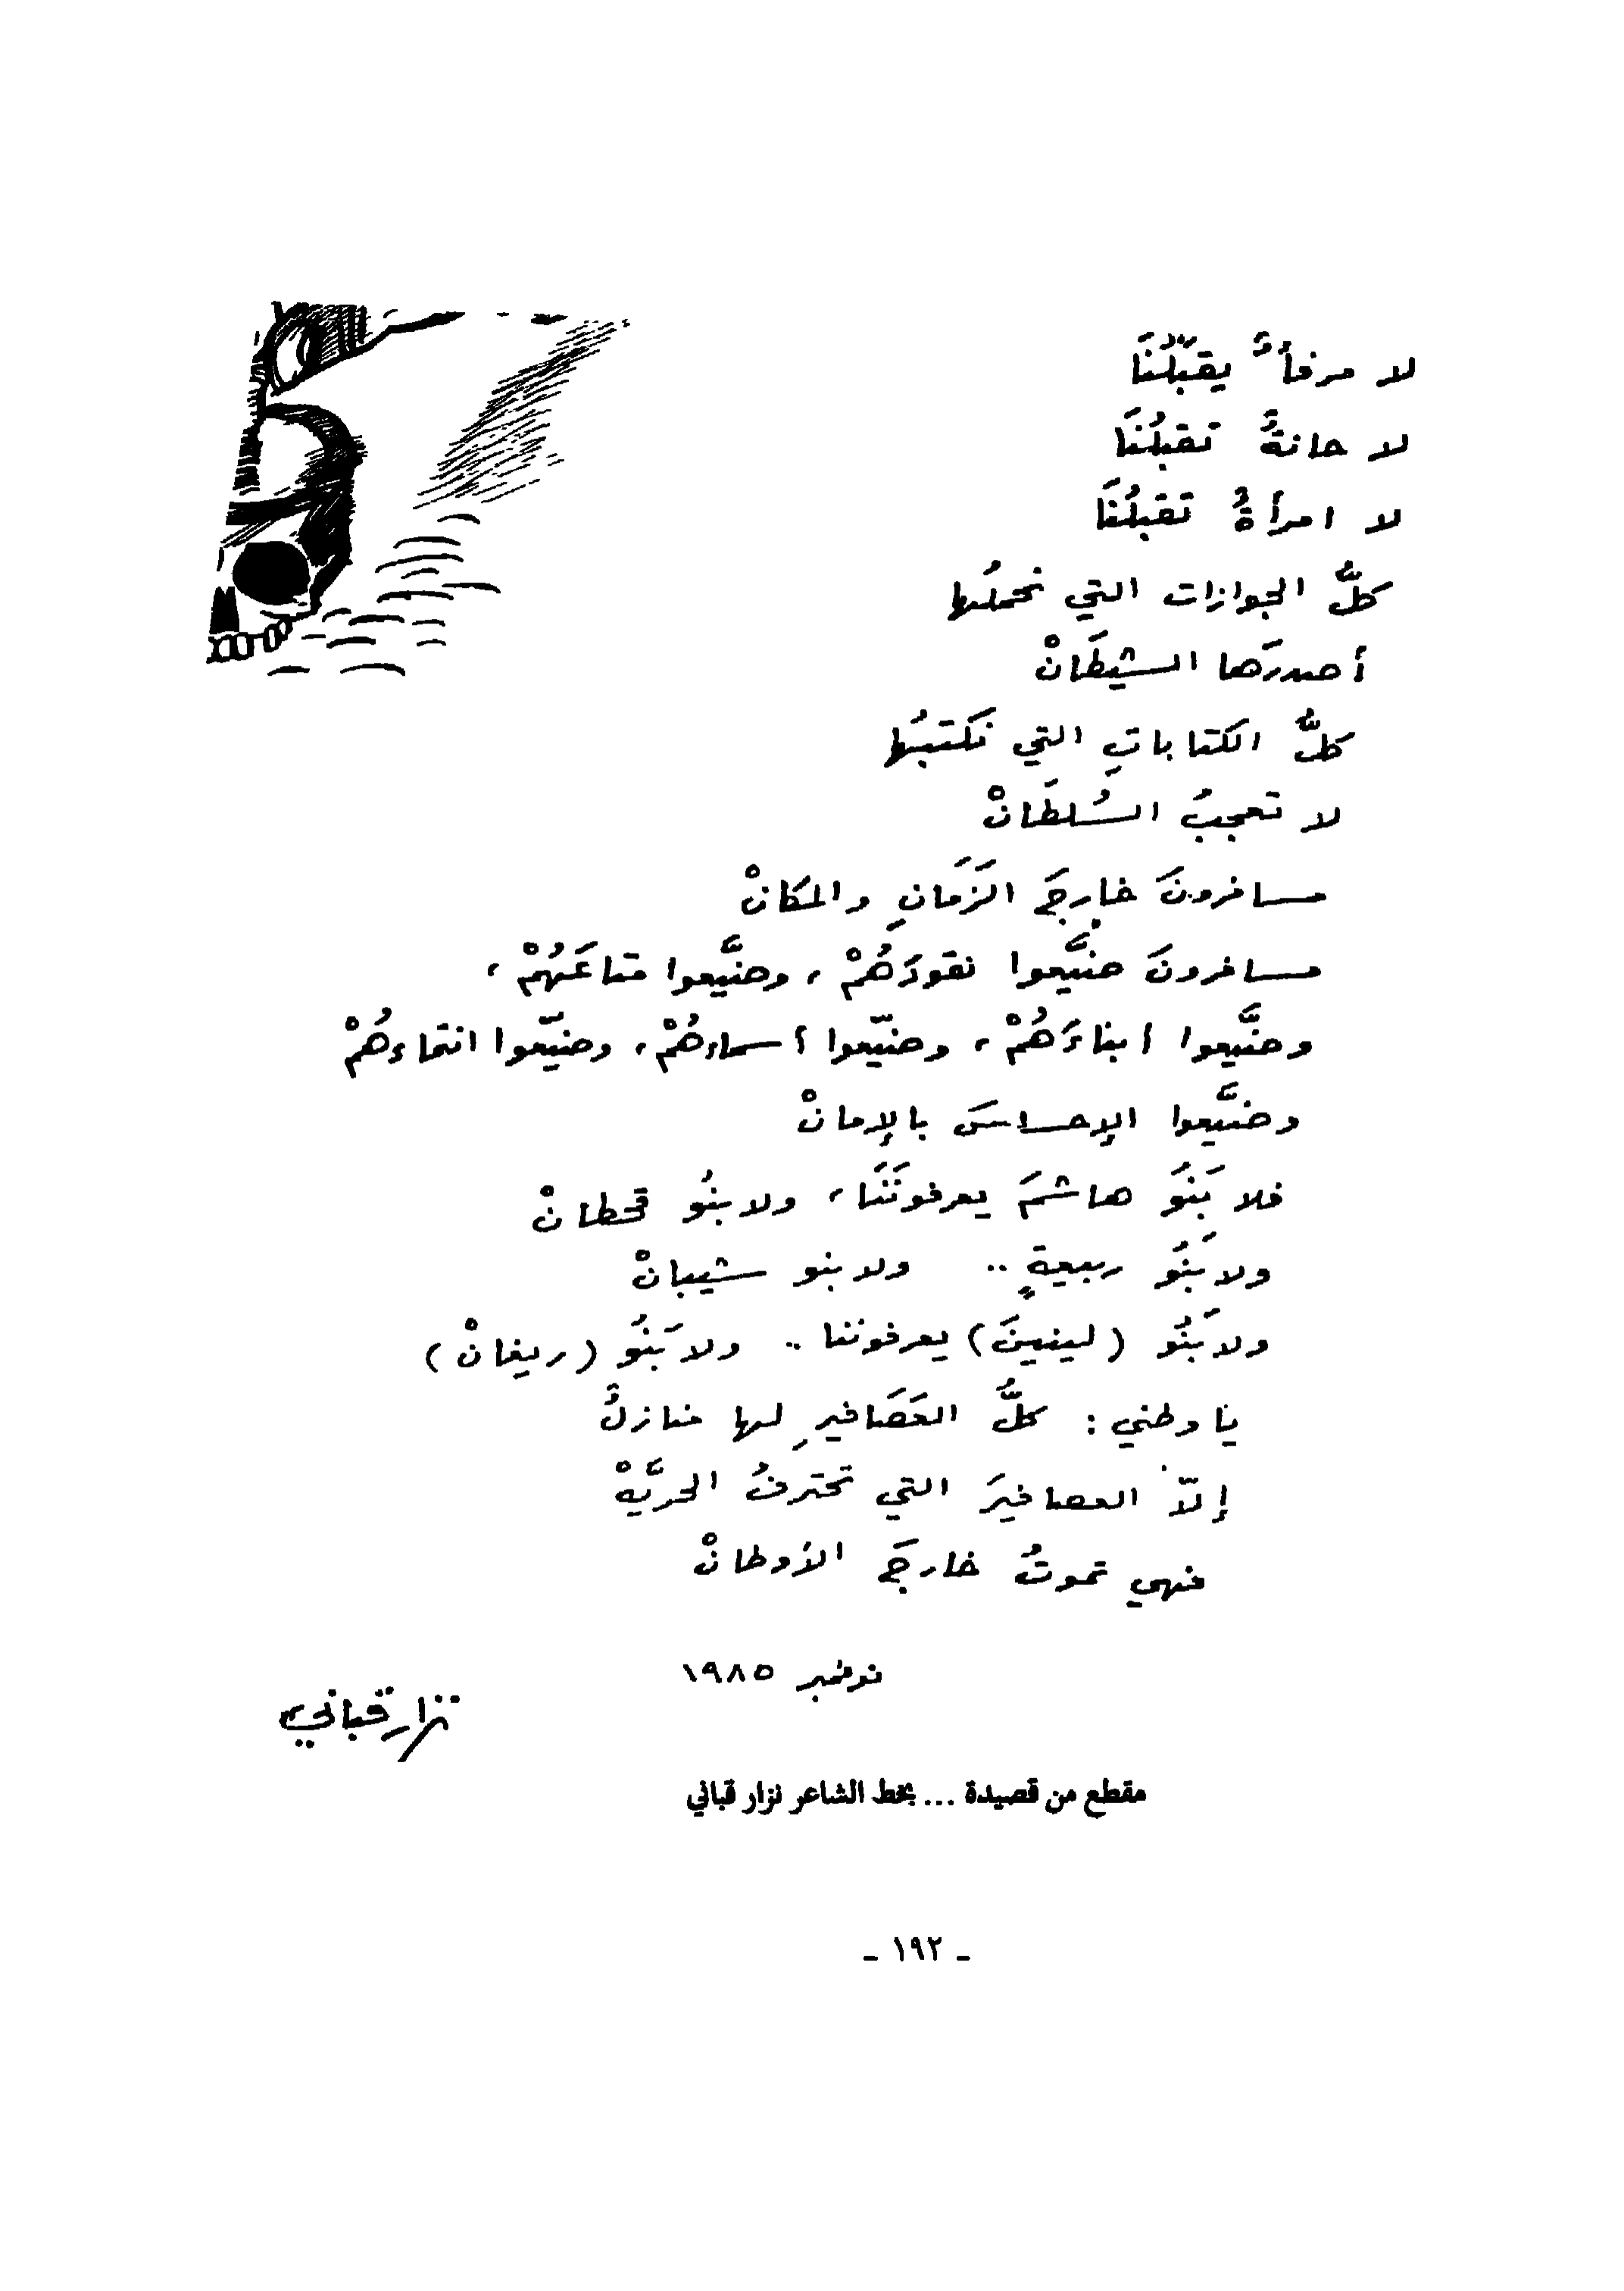 لا مرفأٌ يقبَلُنَا
لا حانةٌ تقبلُنَا
لا امرأةٌ تقبلُنَا
كلُّ الجوازات التي نحملُها
أصدرَها الشيطَانْ
كلُّ الكتاباتِ التي نكتبُها
لا تعجبُ السُلطَانْ
مسافرونَ خارِجَ الزَمَانِ والمكَانْ
مسافرونَ ضيَّعوا نقودَهُمْ ، وضيَّعوا متاعَهُمْ ،
وضيَّعوا أبناءَهُمْ ، وضيّعوا أسماءهُمْ ، وضيّعوا انتماءهُمْ
وضيَّعوا الإحساسَ بالإمانْ
فلا بَنُو هاشمَ يعرفونَنَا ، ولا بنُو قحطانْ
ولا بَنُو ربيعةٍ .. ولا بنو شيبانْ
ولا بَنُو (لينينَ) يعرفوننا .. ولا بَنُو (ريغانْ)
يا وطني : كلُّ العَصَافيرِ لها منازلٌ
إلاّ العصافيرَ التي تحترفُ الحريَّهْ
فهي تموتُ خارجَ الأوطانْ
نوفمبر ١٩٨٥
نزار قباني
مقطع من قصيدة ... بخط الشاعر نزار قباني
ـ ١٩٢ ـ